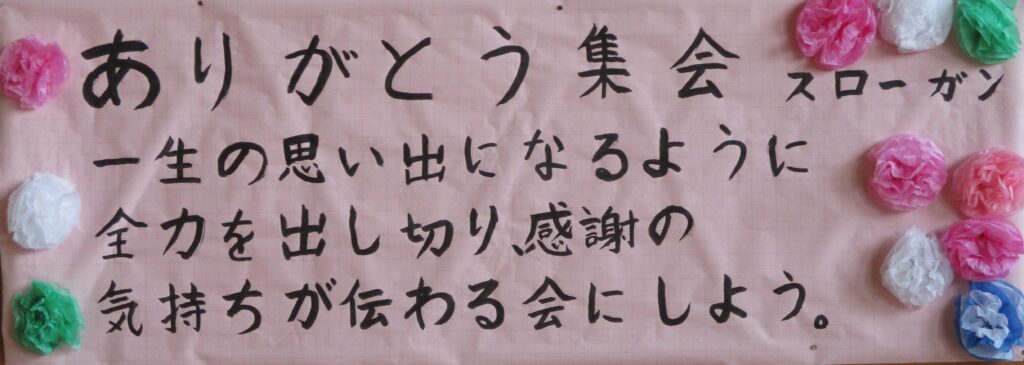 ありがとう集会 スローガン
一生の思い出になるように
全力を出し切り、感謝の
気持ちが伝わる会にしよう。